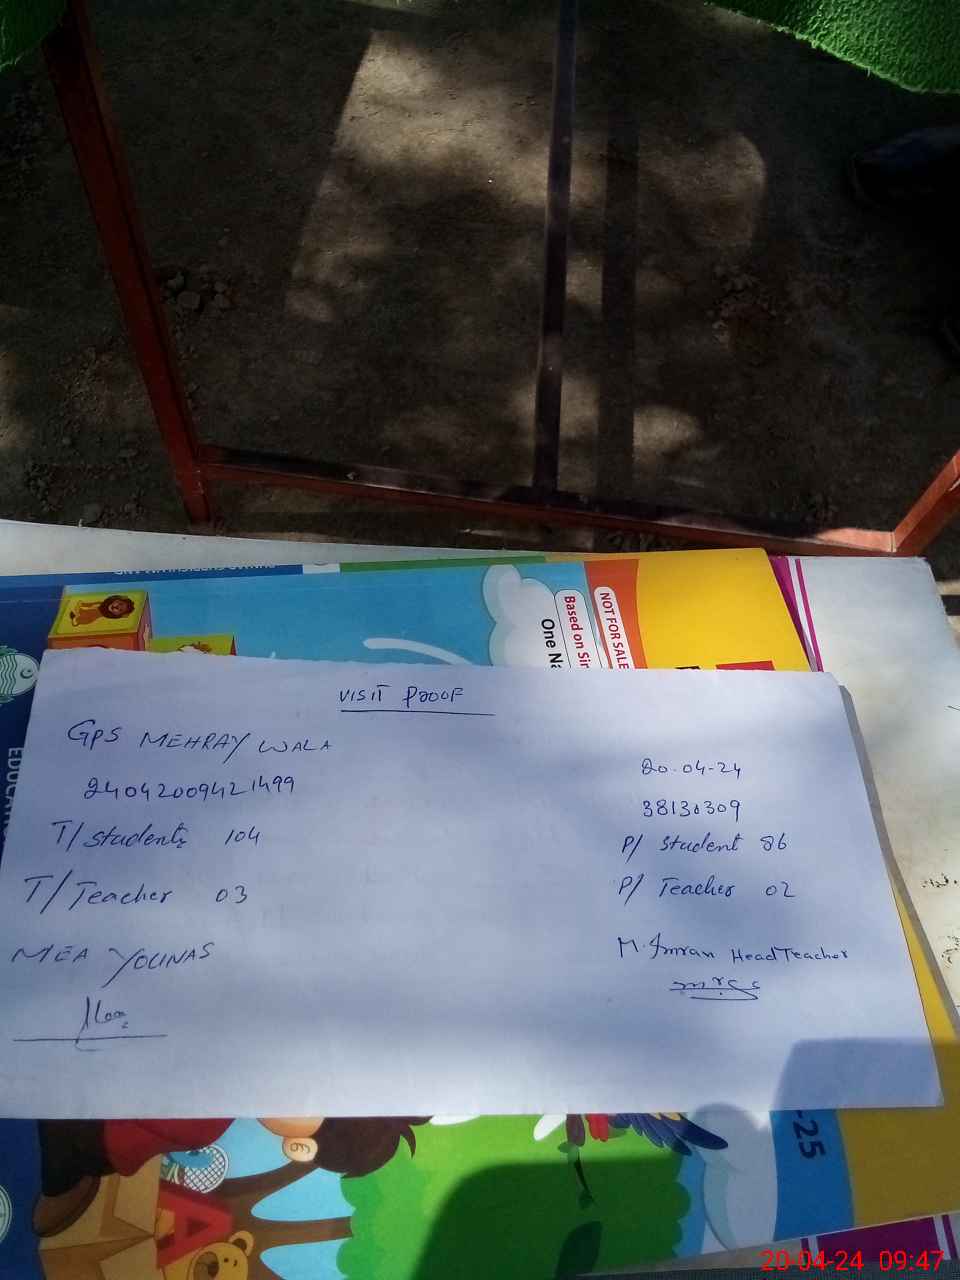 NOT FOR SALE
Based on Sin
One Na
EDUCATIO
VISIT PROOF
GPS MEHRAY WALA
20-04-24
24042009421499
38130309
T/Students 104
P/ Student 86
T/Teacher 03
P/ Teacher 02
MEA YOUNAS
M. Imran Head Teacher
-25
A
20-04-24 09:47